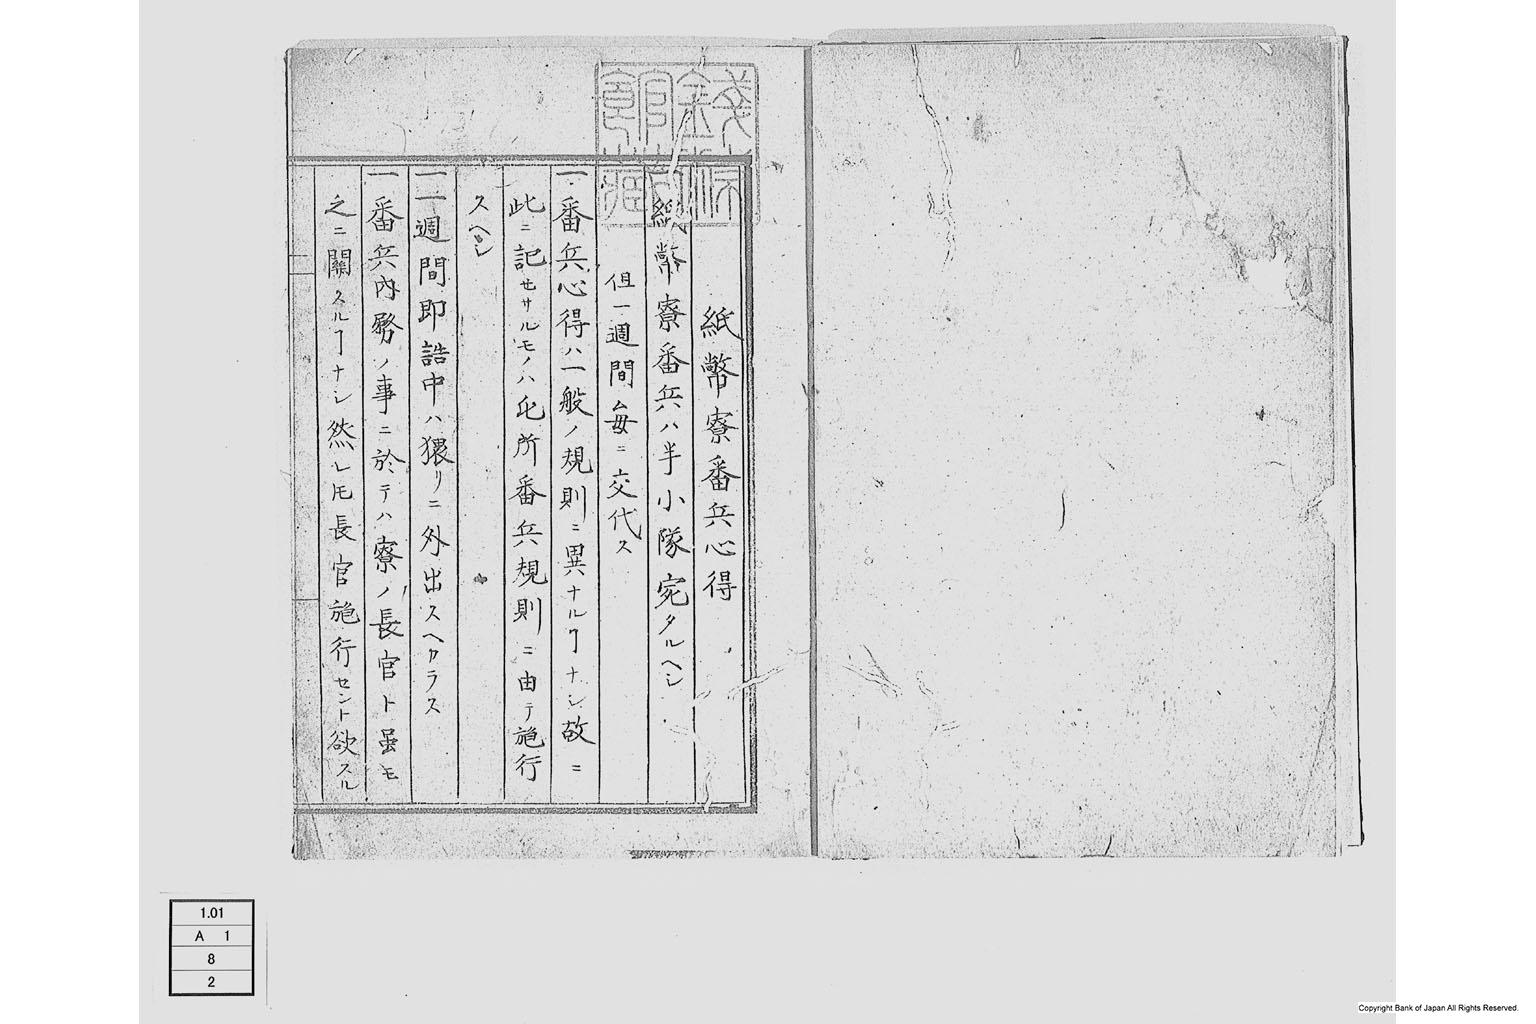 紙幣寮番兵心得
紙幣寮番兵ハ半小隊宛タルヘシ
但一週間毎ニ交代ス
一番兵心得ハ一般ノ規則ニ異ナルヿナシ故ニ
此ニ記セサルモノハ他所番兵規則ニ由テ施行
スヘシ
一一週間即詰中ハ猥リニ外出スヘカラス
一番兵内務ノ事ニ於テハ寮ノ長官ト虽モ
之ニ關スルヿナシ然レ𪜈長官施行セント欲スル
1.01
A 1
8
2
Copyright Bank of Japan All Rights Reserved.